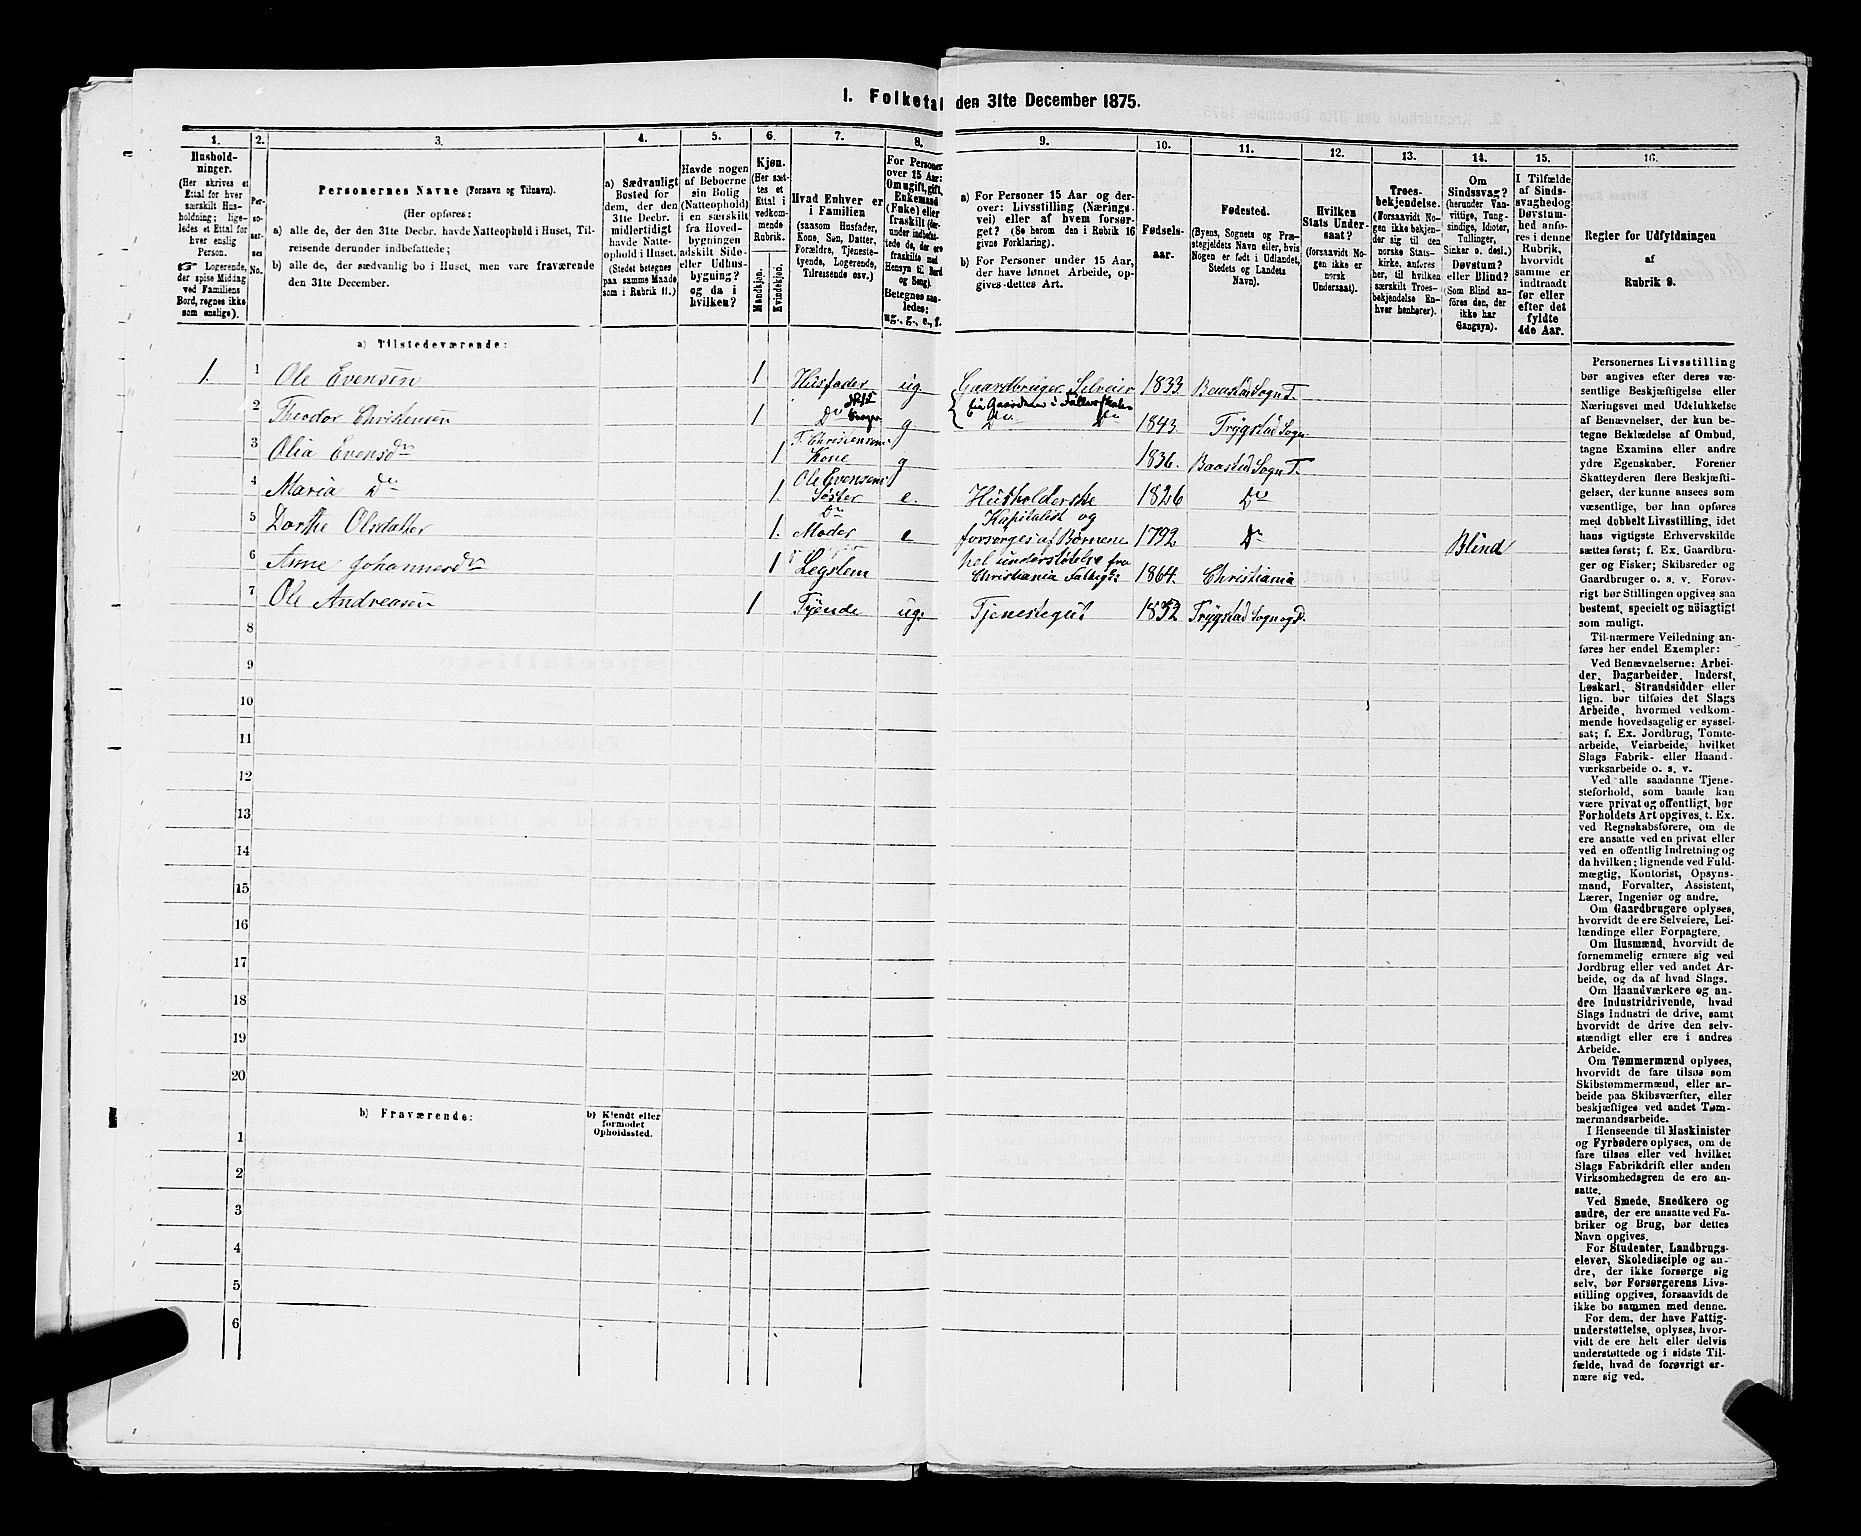 1. Folketal den 31te December 1875.
1. 2. 3. 4. 5. 6. 7. 8. 9. 10. 11. 12. 13. 14. 15. 16.
Hushold-
ninger.
(Her skrives et
Ettal for hver
særskilt Hus-
holdning; lige-
ledes et Ettal
for hver
enslig
Person.
☞ Logerende,
der spise Middag
ved Familiens
Bord, regnes ikke
som enslige).
Per-
so-
ner-
nes
No.
Personernes Navne (Fornavn og Tilnavn).
(Her opføres:
a) alle de, der den 31te Decbr. havde Natteophold i Huset, Til-
reisende derunder indbefattede;
b) alle de, der sædvanlig bo i Huset, men vare fraværende
den 31te December.
a) Sædvanligt
Bosted for
dem, der den
31te Decbr.
midlertidigt
havde Natte-
ophold i Huset.
(Stedet betegnes
paa samme Maade
som i Rubrik 11.)
Havde nogen
af Beboerne
sin Bolig
(Natteophold)
i en særskilt
fra Hoved-
bygningen
adskilt Side-
eller Udhus-
bygning?
og da i
hvilken?
Kjøn.
(Her sæt-
tes et
Ettal i
vedkom-
mende
Rubrik.
Mandkjøn.
Kvindekjøn.
Hvad Enhver er
i Familien
(saasom Husfader,
Kone, Søn, Datter,
Forældre, Tjeneste-
tyende, Logerende,
Tilreisende osv.)
For Personer
over 15 Aar:
Om ugift, gift,
Enkemand
(Enke) eller
fraskilt (der-
under indbefat-
tede de, der ere
fraskilte med
Hensyn til Bord
og Seng).
Betegnes saa-
ledes:
ug., g., e., f.
a) For Personer 15 Aar og der-
over: Livsstilling (Nærings-
vei) eller af hvem forsør-
get? (Se herom den i Rubrik 16
givne Forklaring).
b) For Personer under 15 Aar,
der have lønnet Arbeide, op-
gives dettes Art.
Fødsels-
aar.
Fødested.
(Byens, Sognets og Præ-
stegjeldets Navn eller, hvis
Nogen er født i Udlandet,
Stedets og Landets
Navn).
Hvilken
Stats Under-
saat?
(forsaavidt No-
gen ikke er
norsk
Undersaat).
Troes-
bekjendelse.
(Forsaavidt No-
gen ikke bekjen-
der sig til den
norske Stats-
kirke, anføres
her, til hvilken
særskilt Troes-
bekjendelse En-
hver henhører).
Om
Sindssvag?
(herunder Van-
vittige, Tung-
sindige, Idioter,
Tullinger,
Sinker o. desl.)
Døvstum?
eller Blind?
(Som Blind an-
føres den, der
ikke har
Gangsyn).
I Tilfælde
af Sinds-
svaghed og
Døvstum-
hed anfø-
res i denne
Rubrik,
hvorvidt
samme er
indtraadt
før eller
efter det
fyldte
4de Aar.
Regler for Udfyldningen
af
Rubrik 9.
a) Tilstedeværende:
1. 1 Ole Evensen 1 Husfader ug. Gaardbruger Selveier 1833 Baastad Sogn T.
2 Theodor Christensen 1 Do g Do Do 1843. Trygstad Sogn
3 Olia Evensdr 1 T. Christensens Kone g 1836. Baastad Sogn T.
4 Maria Do 1 Ole Evensens Søster e. Husholderske 1826 Do
5 Dorthe Olsdatter 1. Do Moder e Kapitalist og forsørges af Børnene 1792 Do Blind
6 Anne Johannesdr 1 Legslem understøttelse fra Christiania 1864. Christiania
7 Ole Andreasen 1 Tyende ug. Tjenestegut 1852 Trygstad Sogn og P.
8
9
10
11
12
13
14
15
16
17
18
19
20
b) Fraværende:
b) Kjendt eller
formodet
Opholdssted.
1
2
3
4
5
6
Personernes Livsstilling
bør angives efter deres væ-
sentlige Beskjæftigelse eller
Næringsvei med Udelukkelse
af Benævnelser, der kun be-
tegne Beklædelse af Ombud,
tagne Examina eller andre
ydre Egenskaber. Forener
Skatteyderen flere Beskjæfti-
gelser, der kunne ansees som
væsentlige, bør han opføres
med dobbelt Livsstilling, idet
hans vigtigste Erhvervskilde
sættes først; f. Ex. Gaardbru-
ger og Fisker; Skibsreder og
Gaardbruger o. s. v. Forøv-
rigt bør Stillingen opgives saa
bestemt, specielt og nøiagtigt
som muligt.
Til nærmere Veiledning an-
føres her endel Exempler:
Ved Benævnelserne: Arbei-
der, Dagarbeider, Inderst,
Løskarl, Strandsidder eller
lign. bør tilføies det Slags
Arbeide, hvormed vedkom-
mende hovedsagelig er syssel-
sat; f. Ex. Jordbrug, Tomte-
arbeide, Veiarbeide, hvilket
Slags Fabrik- eller Haand-
værksarbeide o. s. v.
Ved alle saadanne Tjene-
steforhold, som baade kan
være privat og offentligt, bør
Forholdets Art opgives, t. Ex.
ved Regnskabsførere, om de
ere ansatte ved en privat eller
ved en offentlig Indretning og
da hvilken; lignende ved Fuld-
mægtig, Kontorist, Opsyns-
mand, Forvalter, Assistent,
Lærer, Ingeniør og andre.
Om Gaardbrugere oplyses,
hvorvidt de ere Selveiere, Lei-
lændinge eller Forpagtere.
Om Husmænd, hvorvidt de
fornemmelig ernære sig ved
Jordbrug eller ved andet Ar-
beide, og da af hvad Slags.
Om Haandværkere og an-
dre Industridrivende, hvad
Slags Industri de drive, samt
hvorvidt de drive den selv-
stændigt eller ere i andres
Arbeide.
Om Tømmermænd oplyses,
hvorvidt de fare tilsøs som
Skibstømmermænd, eller ar-
beide paa Skibsværfter, eller
beskjæftiges ved andet Tøm-
mermandsarbeide.
I Henseende til Maskinister
og Fyrbødere oplyses, om de
fare tilsøs eller ved hvilket
Slags Fabrikdrift eller anden
Virksomhedsgren de ere an-
satte.
Ved Smede, Snedkere og
andre, der ere ansatte ved Fa-
briker og Brug, bør dettes
Navn opgives.
For Studenter, Landbrugs-
elever, Skoledisciple og an-
dre, der ikke forsørge sig
selv, bør Forsørgerens Livs-
stilling opgives, forsaavidt de
ikke bo sammen med denne.
For dem, der have Fattig-
understøttelse, oplyses, hvor-
vidt de ere helt eller delvis
understøttede og i sidste Til-
fælde, hvad de forøvrigt er-
nære sig ved.